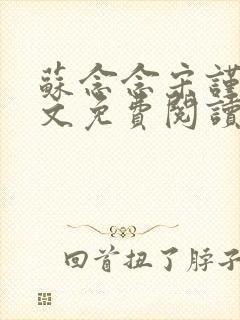 蘇念念宋謹
文免費閱讀
回首扭了脖子